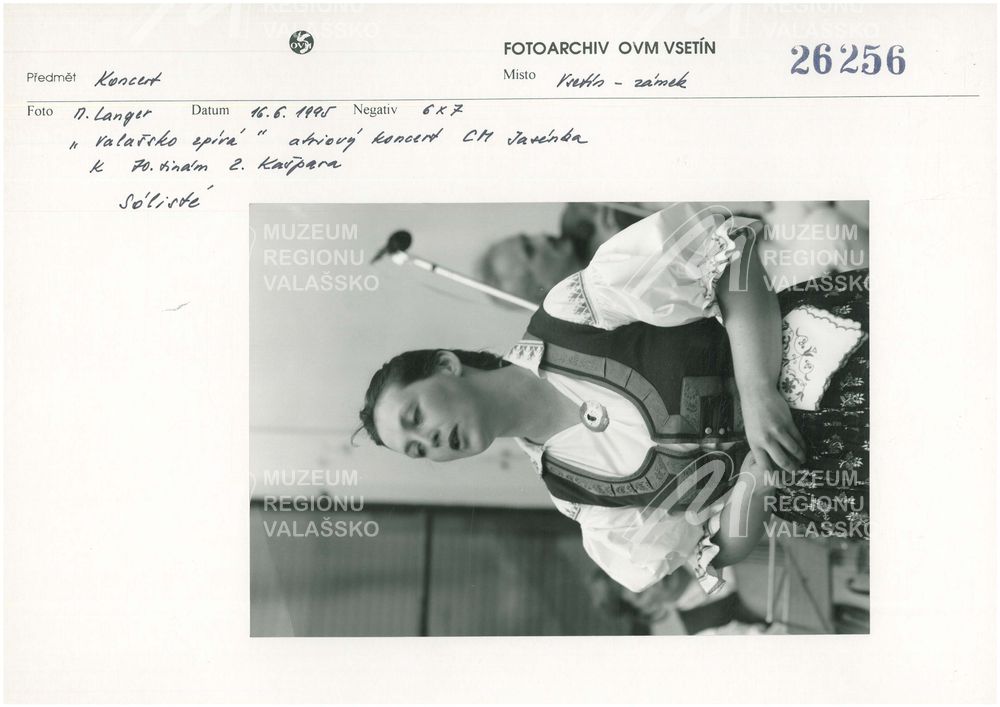 OVM
FOTOARCHIV OVM VSETÍN
26256
Předmět Koncert
Místo Vsetín - zámek
Foto M. Langer Datum 16.6.1995 Negativ 6x7
„Valašsko zpívá“ atriový koncert CM Jasénka
k 70.tinám Z. Kašpara
Sólisté
MUZEUM
REGIONU
VALAŠSKO
MUZEUM
REGIONU
VALAŠSKO
MUZEUM
REGIONU
VALAŠSKO
MUZEUM
REGIONU
VALAŠSKO